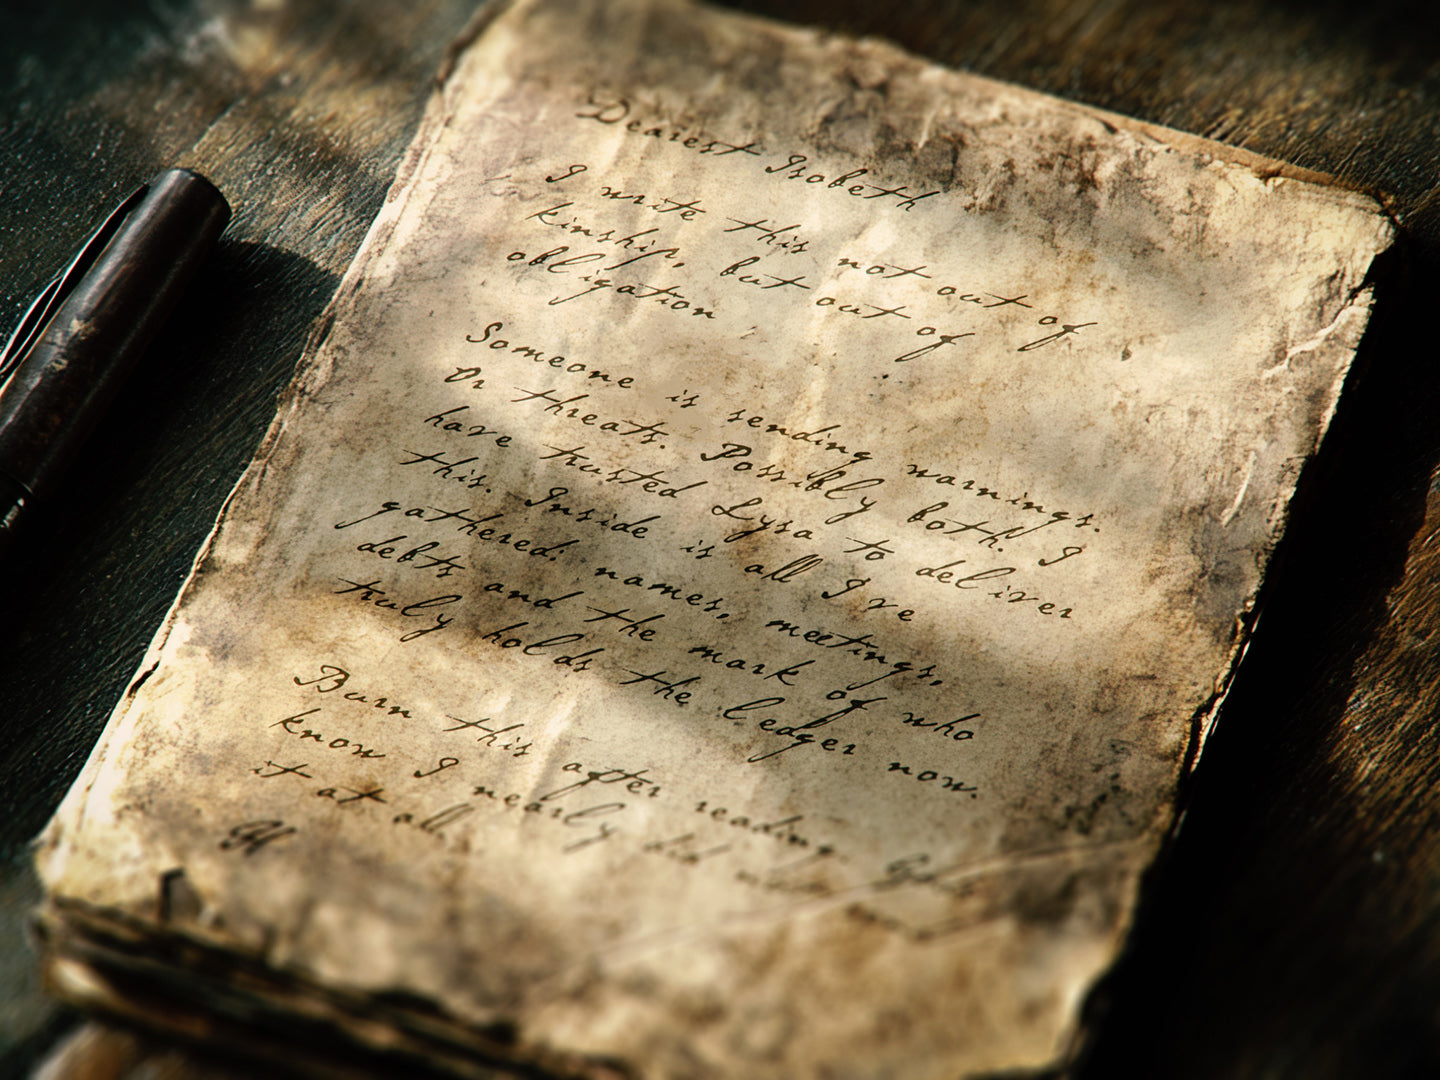 Dearest Isobeth
I write this not out of
kinship, but out of
obligation.
Someone is sending warnings.
Or threats. Possibly both. I
have trusted Lysa to deliver
this. Inside is all I've
gathered: names, meetings,
debts and the mark of who
truly holds the ledger now.
Burn this after reading.
know I nearly did not
it at all.